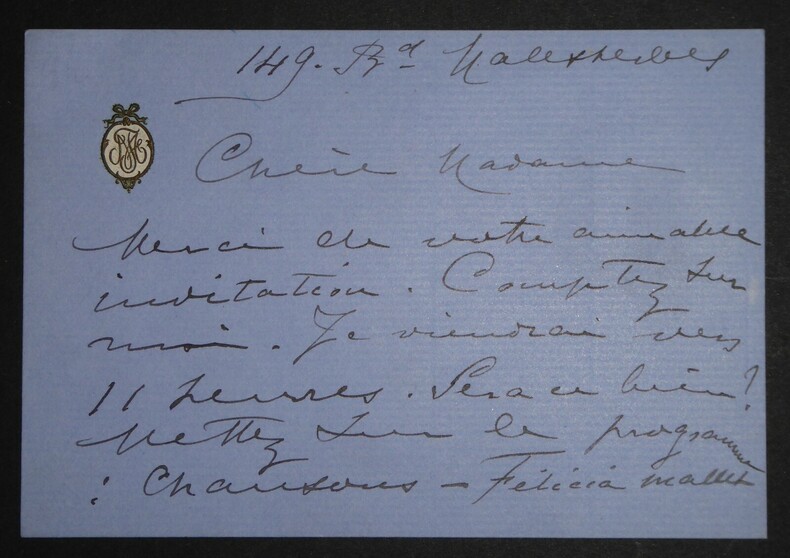 149. Bd Malesherbes
Chère Madame
Merci de votre aimable
invitation. Comptez sur
moi. Je viendrai vers
11 heures. Sera ce bien?
Mettez sur le programme
: Chansons – Félicia Mallet